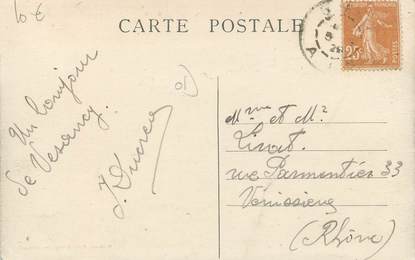 10 €
CARTE POSTALE
25
Un bonjour
de Vesancy.
J. Ducret
Mme et Mr
Linat.
rue Parmentier 33
Vénissieux
(Rhône)